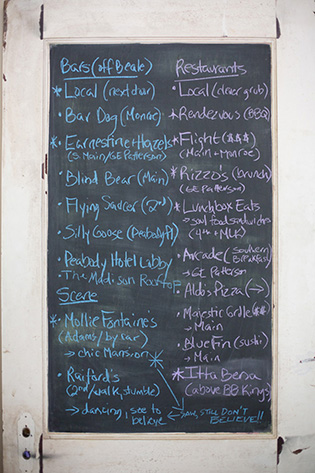 Bars (off Beale)
* Local (next door)
• Bar Dog (Monroe)
* Earnestine + Hazel's
(S. Main/GE Patterson)
• Blind Bear (Main)
• Flying Saucer (2nd)
• Silly Goose (Peabody Pl)
• Peabody Hotel Lobby/
The Madison Rooftop
Scene
* Mollie Fontaine's
(Adams/by car)
→ chic Mansion
• Raiford's
(2nd/walk, stumble)
→ dancing, see to
believe
Restaurants
• Local (clever grub)
* Rendezvous (BBQ)
* Flight ($$$)
(Main + Monroe)
* Rizzo's (brunch)
(GE Patterson)
* Lunchbox Eats
→ soul food sandwiches
(4th + MLK)
• Arcade (Southern Breakfast)
→ GE Patterson
• Aldo's Pizza (→)
• Majestic Grille ($$)
→ Main
• Blue Fin (sushi)
→ Main
* Itta Bena
(above BB Kings)
STILL DON'T
BELIEVE!!